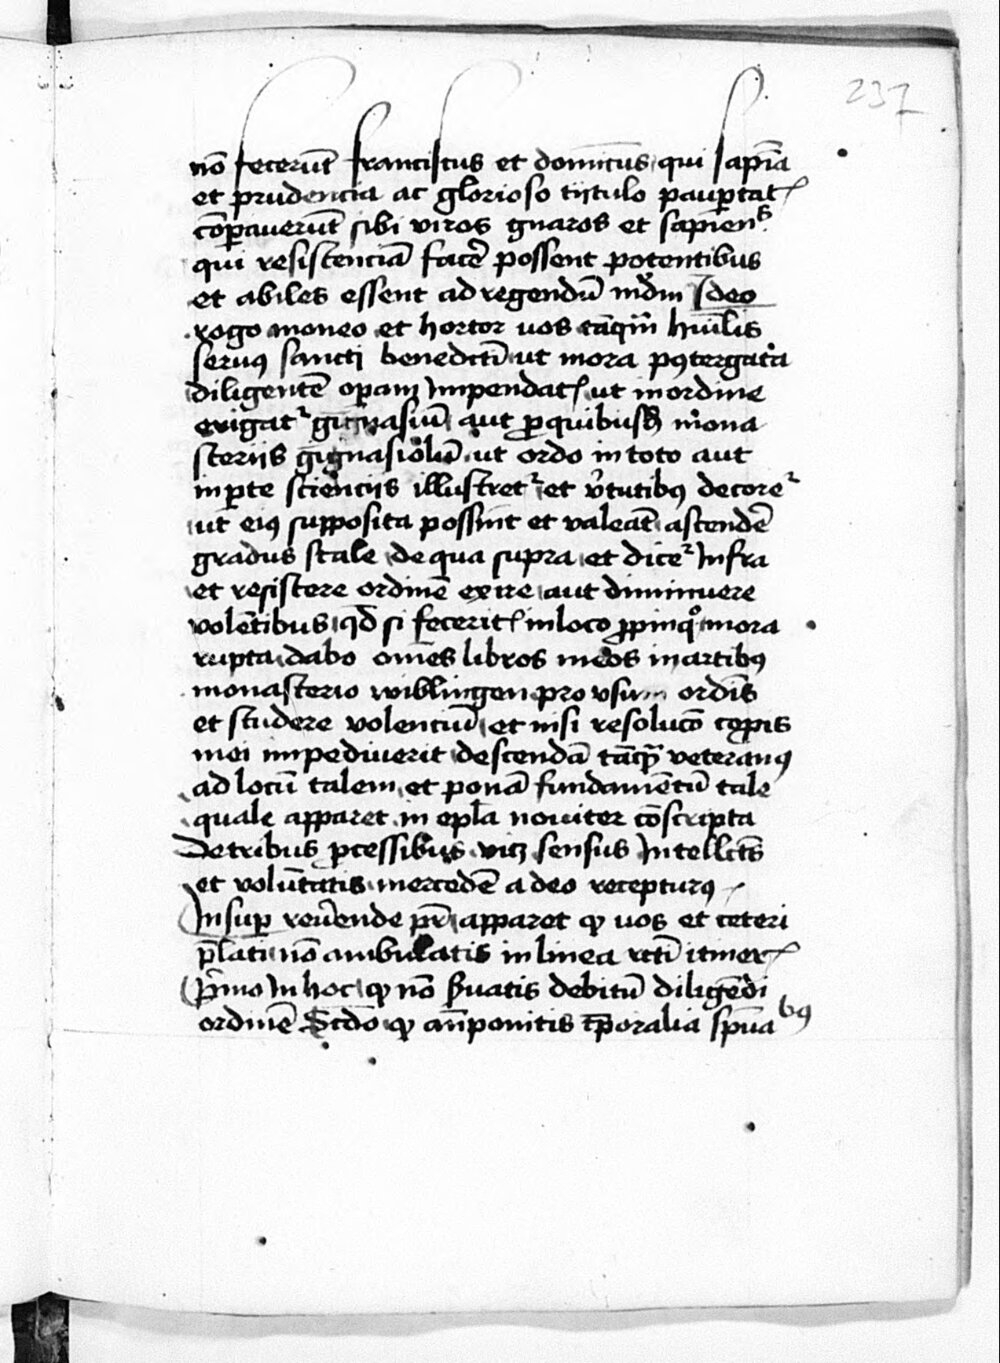 237
nō fecerūt franciscus et dominicus qui sapīa
et prudencia ac glorioso tytulo paupertat
cōparauerūt sibi viros gnaros et sapiens
qui resistenciā facē possent potentibus
et abiles essent ad regendū mūdm Ideo
rogo moneo et hortor vos tāqm̄ huīlis
seruus sancti benedictī ut mora postergata
diligentē operam impendat ut in ordine
erigat gignasiū aut p quibusdā mona
steriis gignasiolū ut ordo in toto aut
in pte scienciis illustret et v̄tutibus decore
ut eius supposita possint et valeāt ascendē
gradus scale de qua supra et dice infra
et resistere ordinē exire aut diminuere
volētibus qd si fecerit in loco ppinqo mora
rupta dabo om̄es libros meos in artibus
monasterio wiblingen pro vsum ordīs
et studere volenciū et nisi resolucō corpis
mei impediuerit descendā tāqꝫ veteranus
ad locū talem et ponā fundamentū tale
quale apparet in epla nouiter cōscripta
De tribus pcessibus vicꝫ sensus Intellcūs
et volūtatis mercedē a deo recepturus
Insup reuēnde pr̄ apparet qꝫ vos et ceteri
p̄lati nō ambulatis in linea rcti itiner
P̄mo in hoc qꝫ nō ẜuatis debitū diligēdi
ordinē Scdō qꝫ an̄ponitis tp̄oralia spūabus